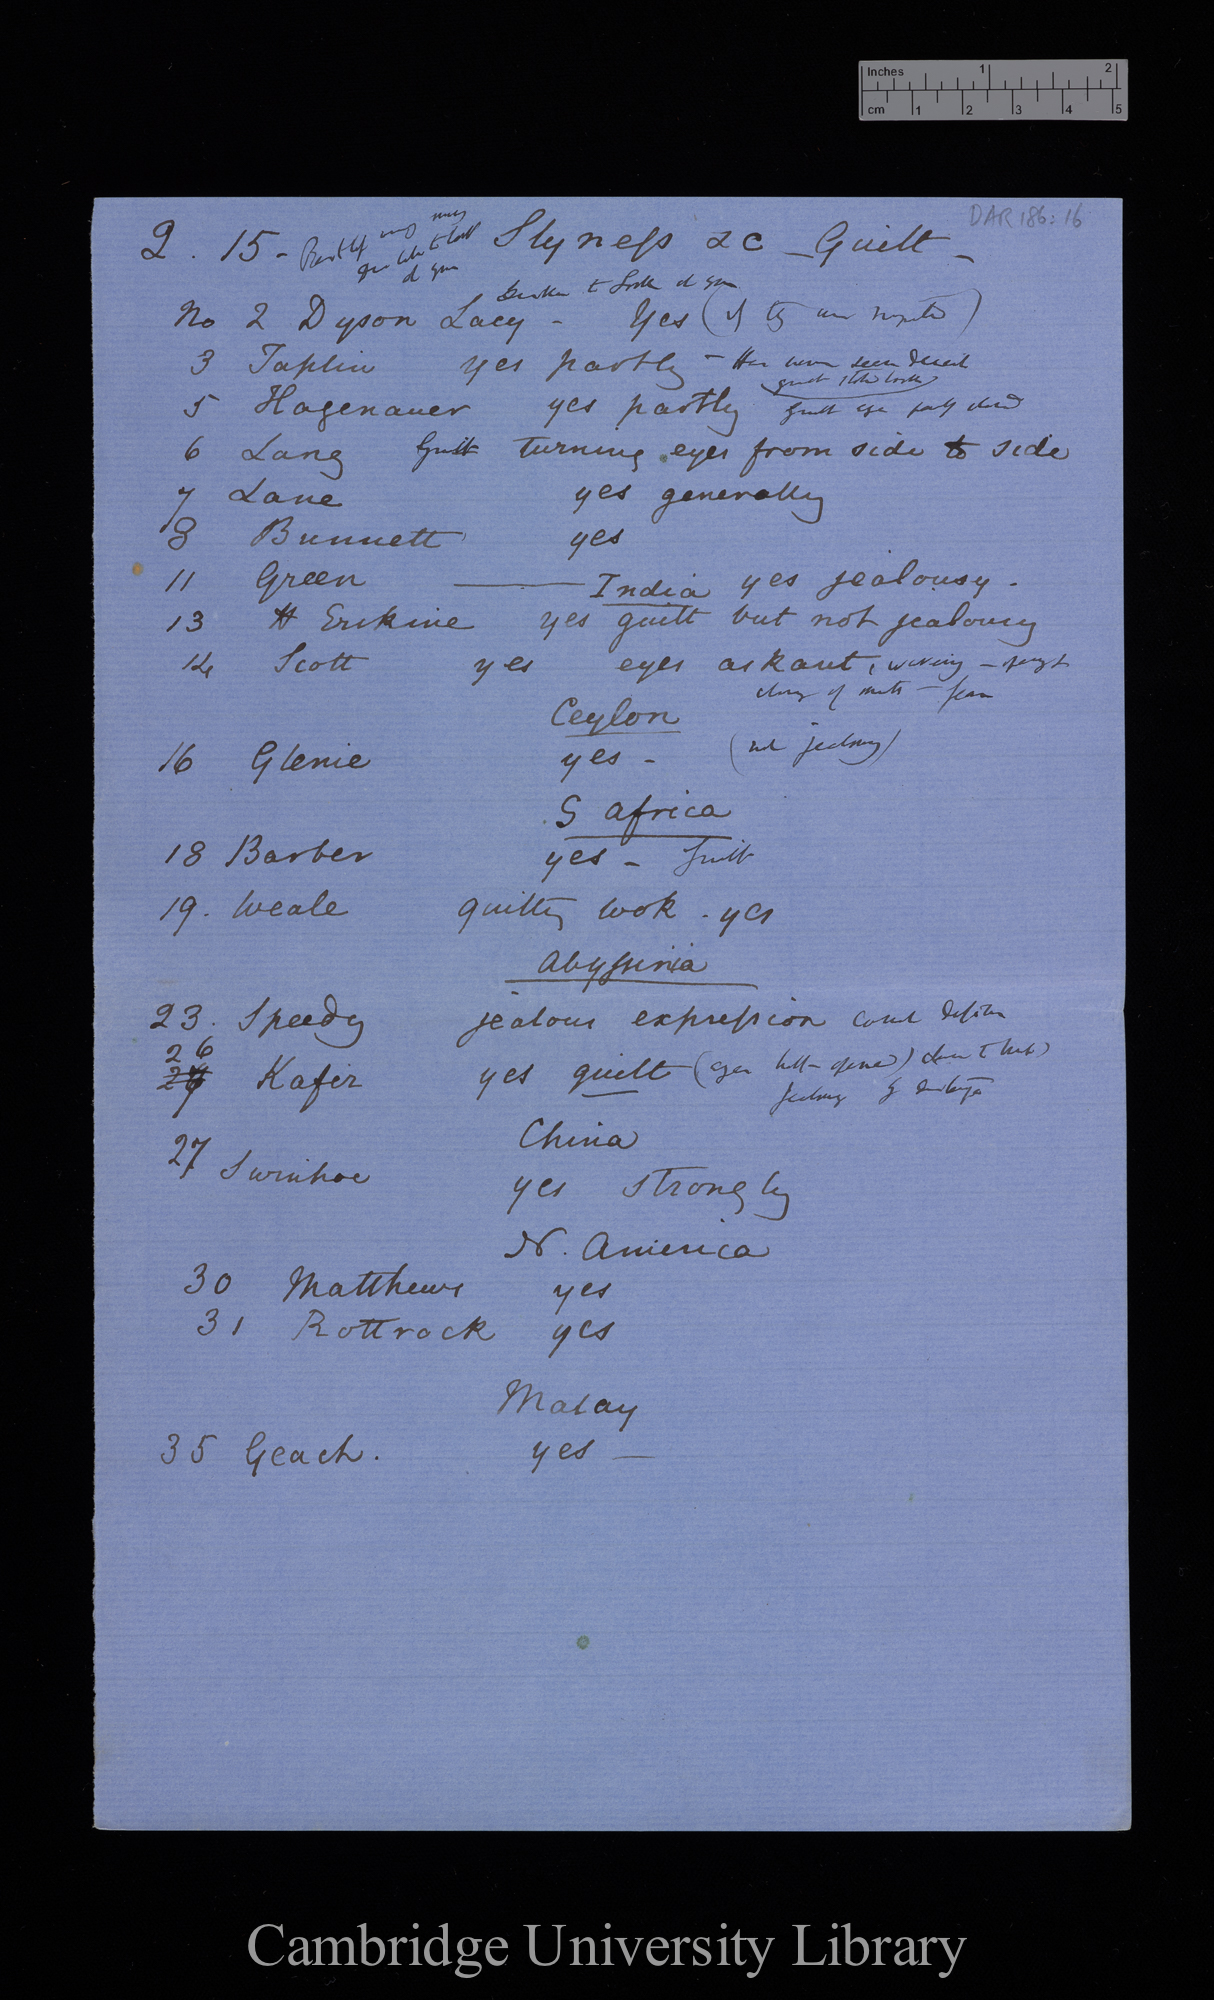 Inches 1 2
cm 1 2 3 4 5
DAR 186: 16
Q. 15 - Slyness &c - Guilt -
to look at you
No 2 Dyson Lacy - Yes
3 Taplin yes partly - Has never seen
guilt
5 Hagenauer yes partly guilt eye partly closed
6 Lang Guilt turning eyes from side to side
7 Lane yes generally
8 Bunnett yes
11 Green India yes jealousy -
13 H Erskine yes guilt but not jealousy
14 Scott yes eyes askant,
fear
Ceylon
16 Glenie yes - (not jealousy)
S Africa
18 Barber yes - Guilt
19. Weale guilty look . yes
Abyssinia
23. Speedy jealous expression
26
Kafir yes guilt (eyes half-opened)
jealousy
China
27 Swinhoe yes strongly
N. America
30 Matthews yes
31 Rottrock yes
Malay
35 Geach. yes —
Cambridge University Library